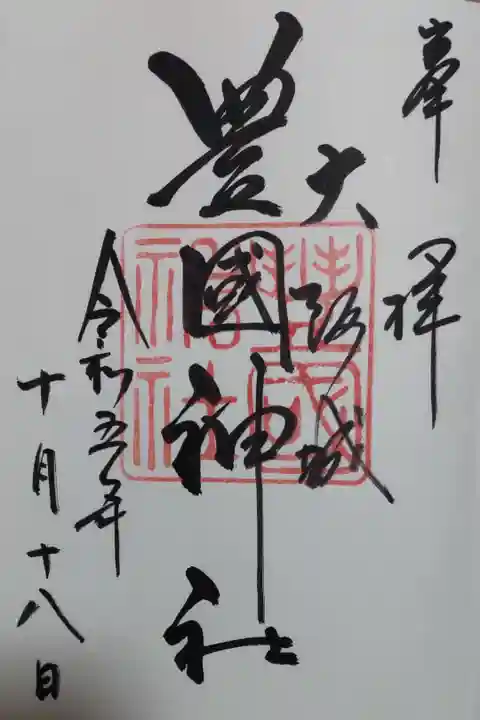 奉拝
大阪城
豊國神社
豊國神社
令和五年
十月十八日